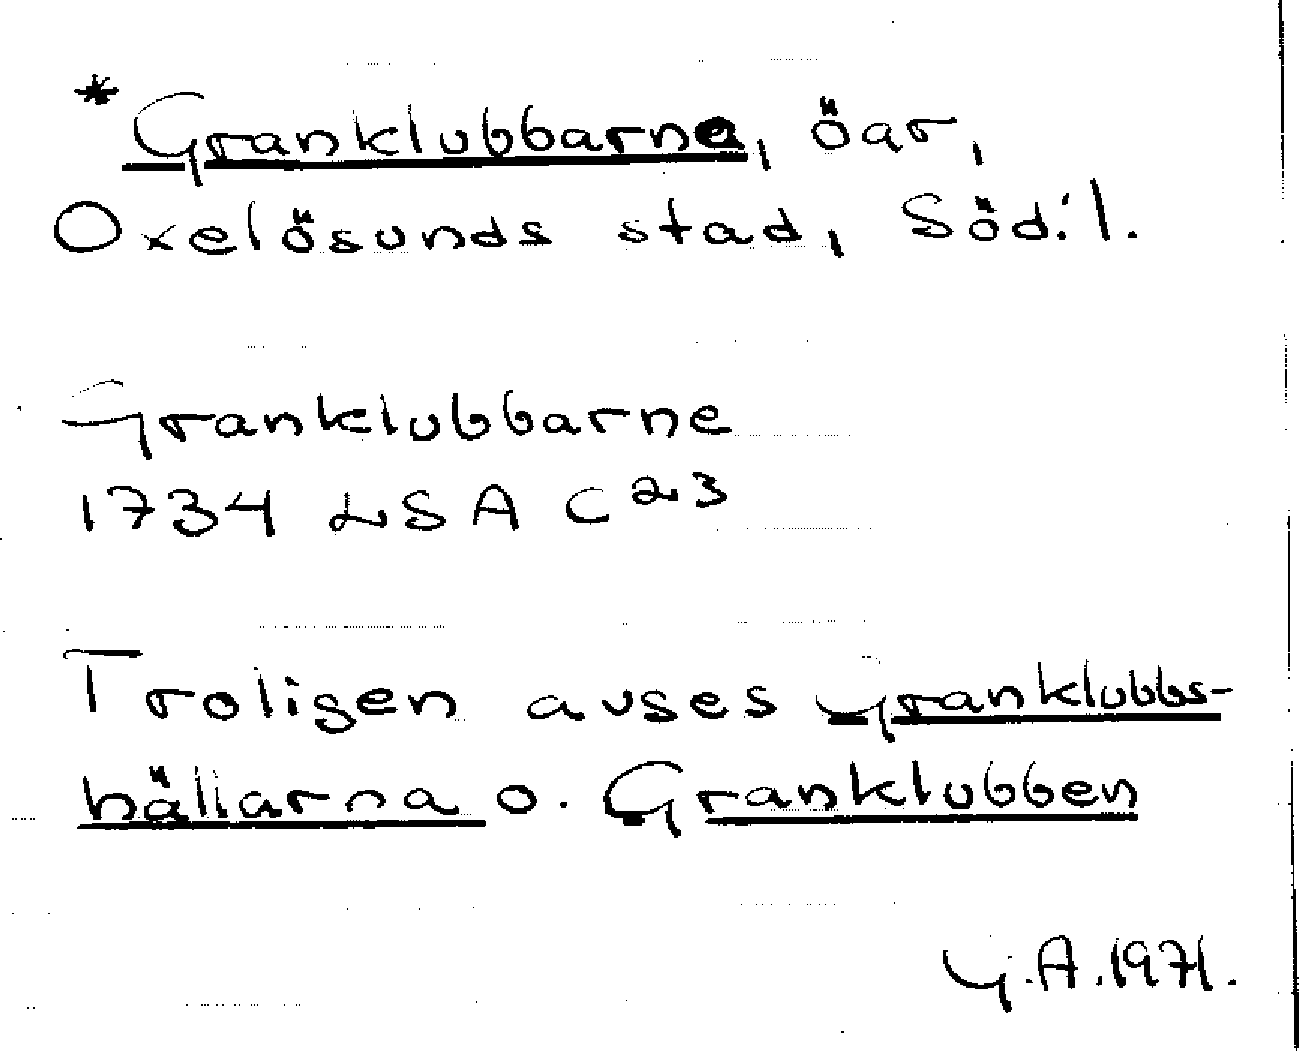 *Granklubbarne, öar,
Oxelösunds stad, Söd:l.
Granklubbarne
1734 LSA C²³
Troligen avses Granklubbs-
hällarna o. Granklubben
G.A.1971.